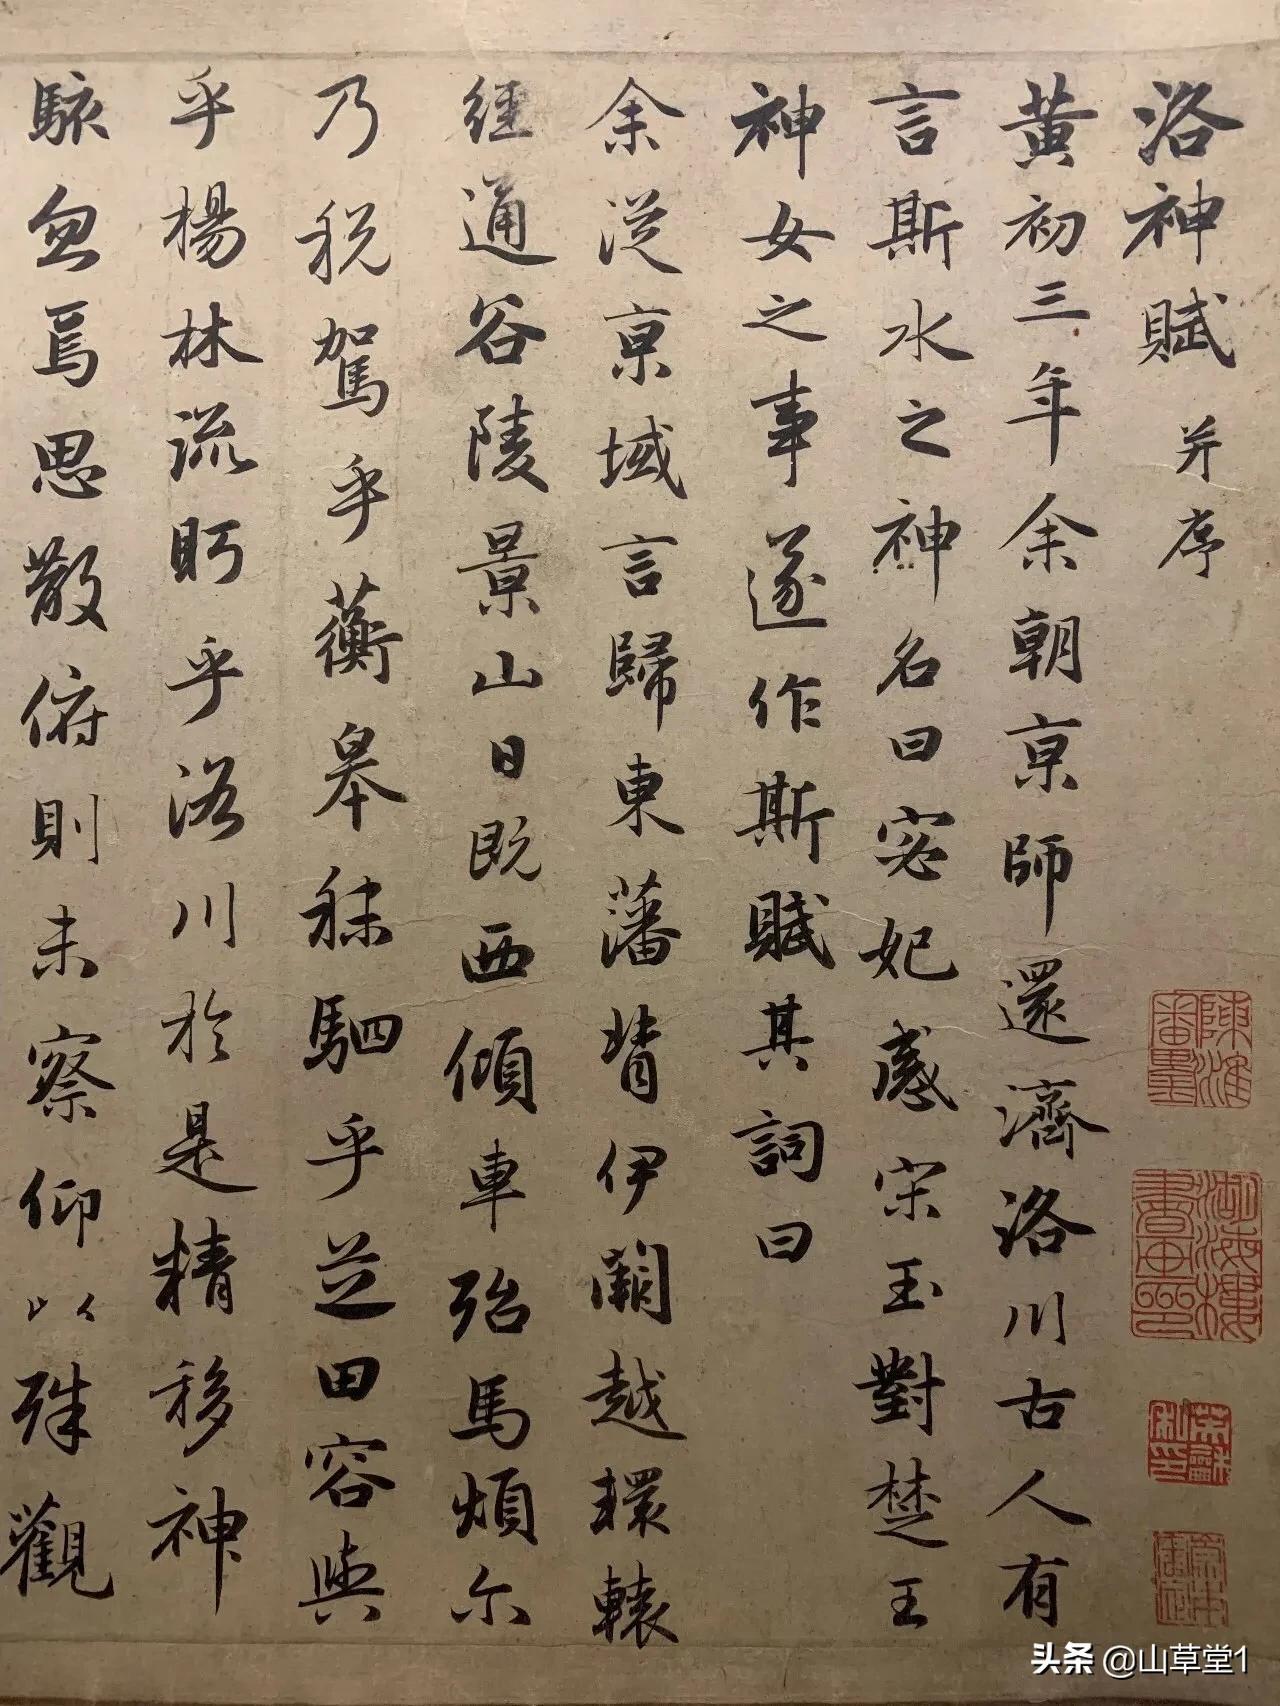 洛神賦 并序
黃初三年余朝京師還濟洛川古人有
言斯水之神名曰宓妃感宋玉對楚王
神女之事遂作斯賦其詞曰
余從京域言歸東藩背伊闕越轘轅
經通谷陵景山日既西傾車殆馬煩尒
乃稅駕乎蘅皋秣駟乎芝田容與
乎楊林流眄乎洛川於是精移神
駭忽焉思散俯則未察仰以殊觀
头条 @山草堂1